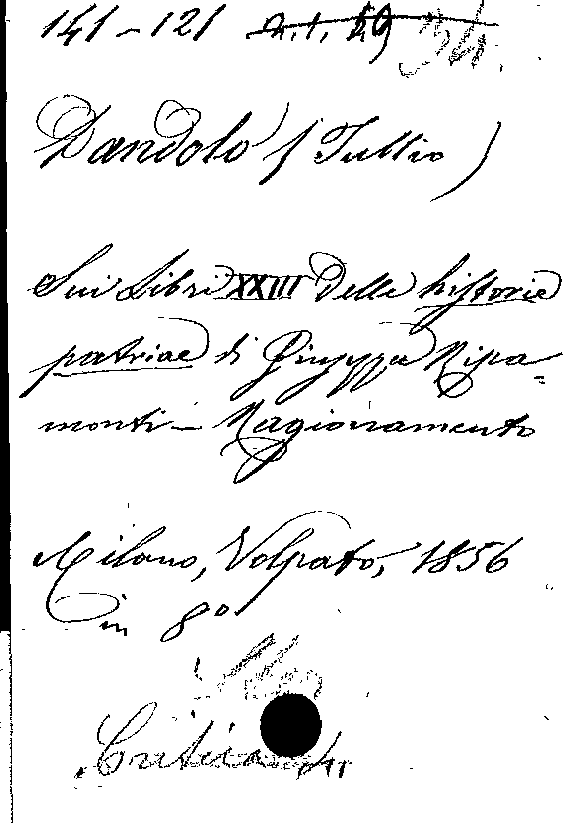 141-121 A.I. 59 34.
Dandolo (Tullio)
Sui Libri XXIII delle historie
patriae di Giuseppe Ripa=
monti - Ragionamento
Milano, Volpato, 1856
in 8º
Critica